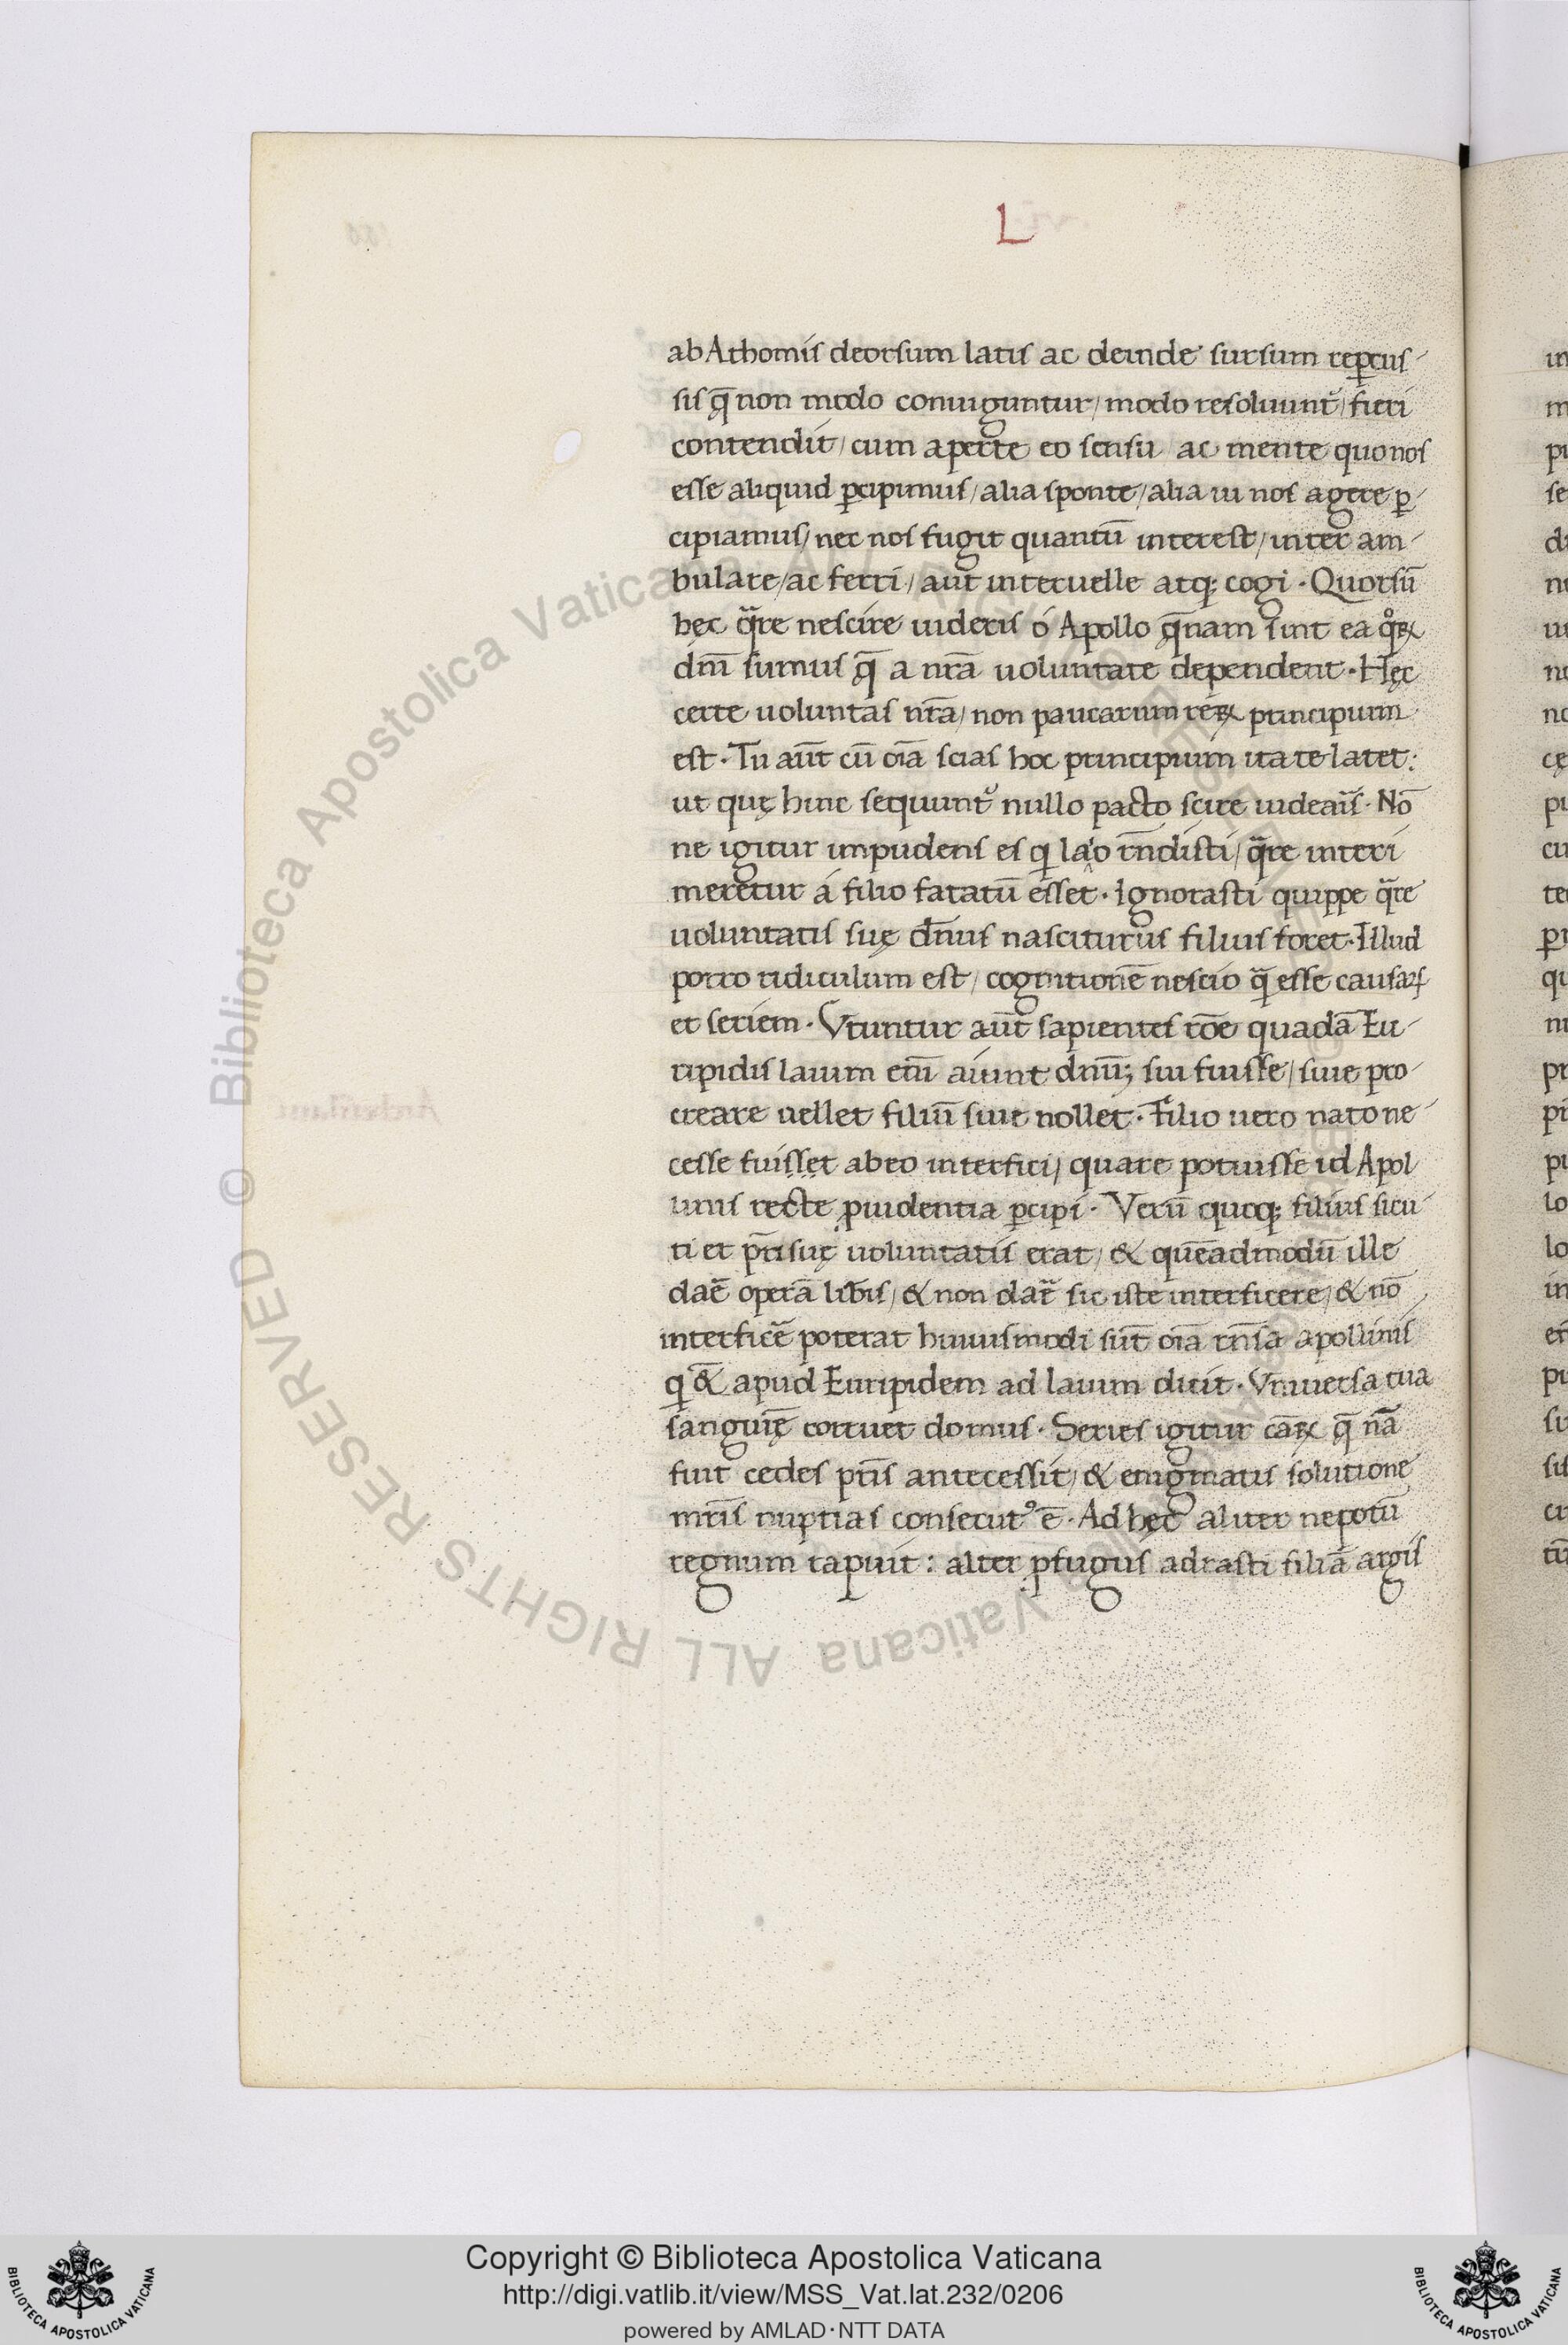 L
ab Athomis deorsum latis ac deinde sursum reꝑcus-
sis q̄ non modo coniuiguntur/ modo resoluunt᷑/ fieri
contendit/ cum aperte eo sensu ac mente quo nos
esse aliquid ꝑcipimus/ alia sponte/ alia ui nos agere ꝑ-
cipiamus/ nec nos fugit quantū interest/ inter am-
bulare/ ac ferri/ aut inter uelle atq; cogi. Quorsū
hęc q̄re nescire uideris ó Apollo q̄nam sint ea qͦꝝ
dn̄i sumus q̄ a nr̄a uoluntate dependent. Hęc
certe uoluntas nr̄a/ non paucarum reꝝ principium
est. Tu aūt cū oīa scias hoc principium ita te latet:
ut quę hinc sequunt᷑ nullo pacto scire uidearis. Nō
ne igitur impudens es qͥ laio rn̄disti/ q̄re interi
meretur á filio fatatū esset. Ignorasti quippe q̄re
uoluntatis suę dn̄us nasciturus filius foret. Illud
porro ridiculum est/ cognitionē nescio q̄ esse causaꝝ
et seriem. Vtuntur aūt sapientes rōe quadā Eu-
ripidis laium em̄ aiunt dn̄um sui fuisse/ siue pro-
creare uellet filiū siue nollet. Filio uero nato ne-
cesse fuisset ab eo interfici/ quare potuisse id Apol
linis recte ꝓuidentia ꝑcipi. Verū quoq; filius sicu-
ti et pr̄is suę uoluntatis erat/ & quēadmodū ille
daē operā lib̄is/ & non daē sic iste interficere/ & nō
interficē poterat huiusmodi sūt oīa rn̄sa apollinis
qͥ & apud Euripidem ad laium dicit. Vniuersa tua
sanguīe corruet domus. Series igitur cāꝝ q̄ nā
fuit cedes pr̄is antecessit/ & enigmatis solutione
mr̄is nuptias consecutꝰ ē. Ad hęc aliter nepotū
regnum rapuit: alter ꝓfugus adrasti filiā argis
Copyright © Biblioteca Apostolica Vaticana
http://digi.vatlib.it/view/MSS_Vat.lat.232/0206
powered by AMLAD·NTT DATA
BIBLIOTECA APOSTOLICA VATICANA
BIBLIOTECA APOSTOLICA VATICANA
© Biblioteca Apostolica Vaticana ALL RIGHTS RESERVED